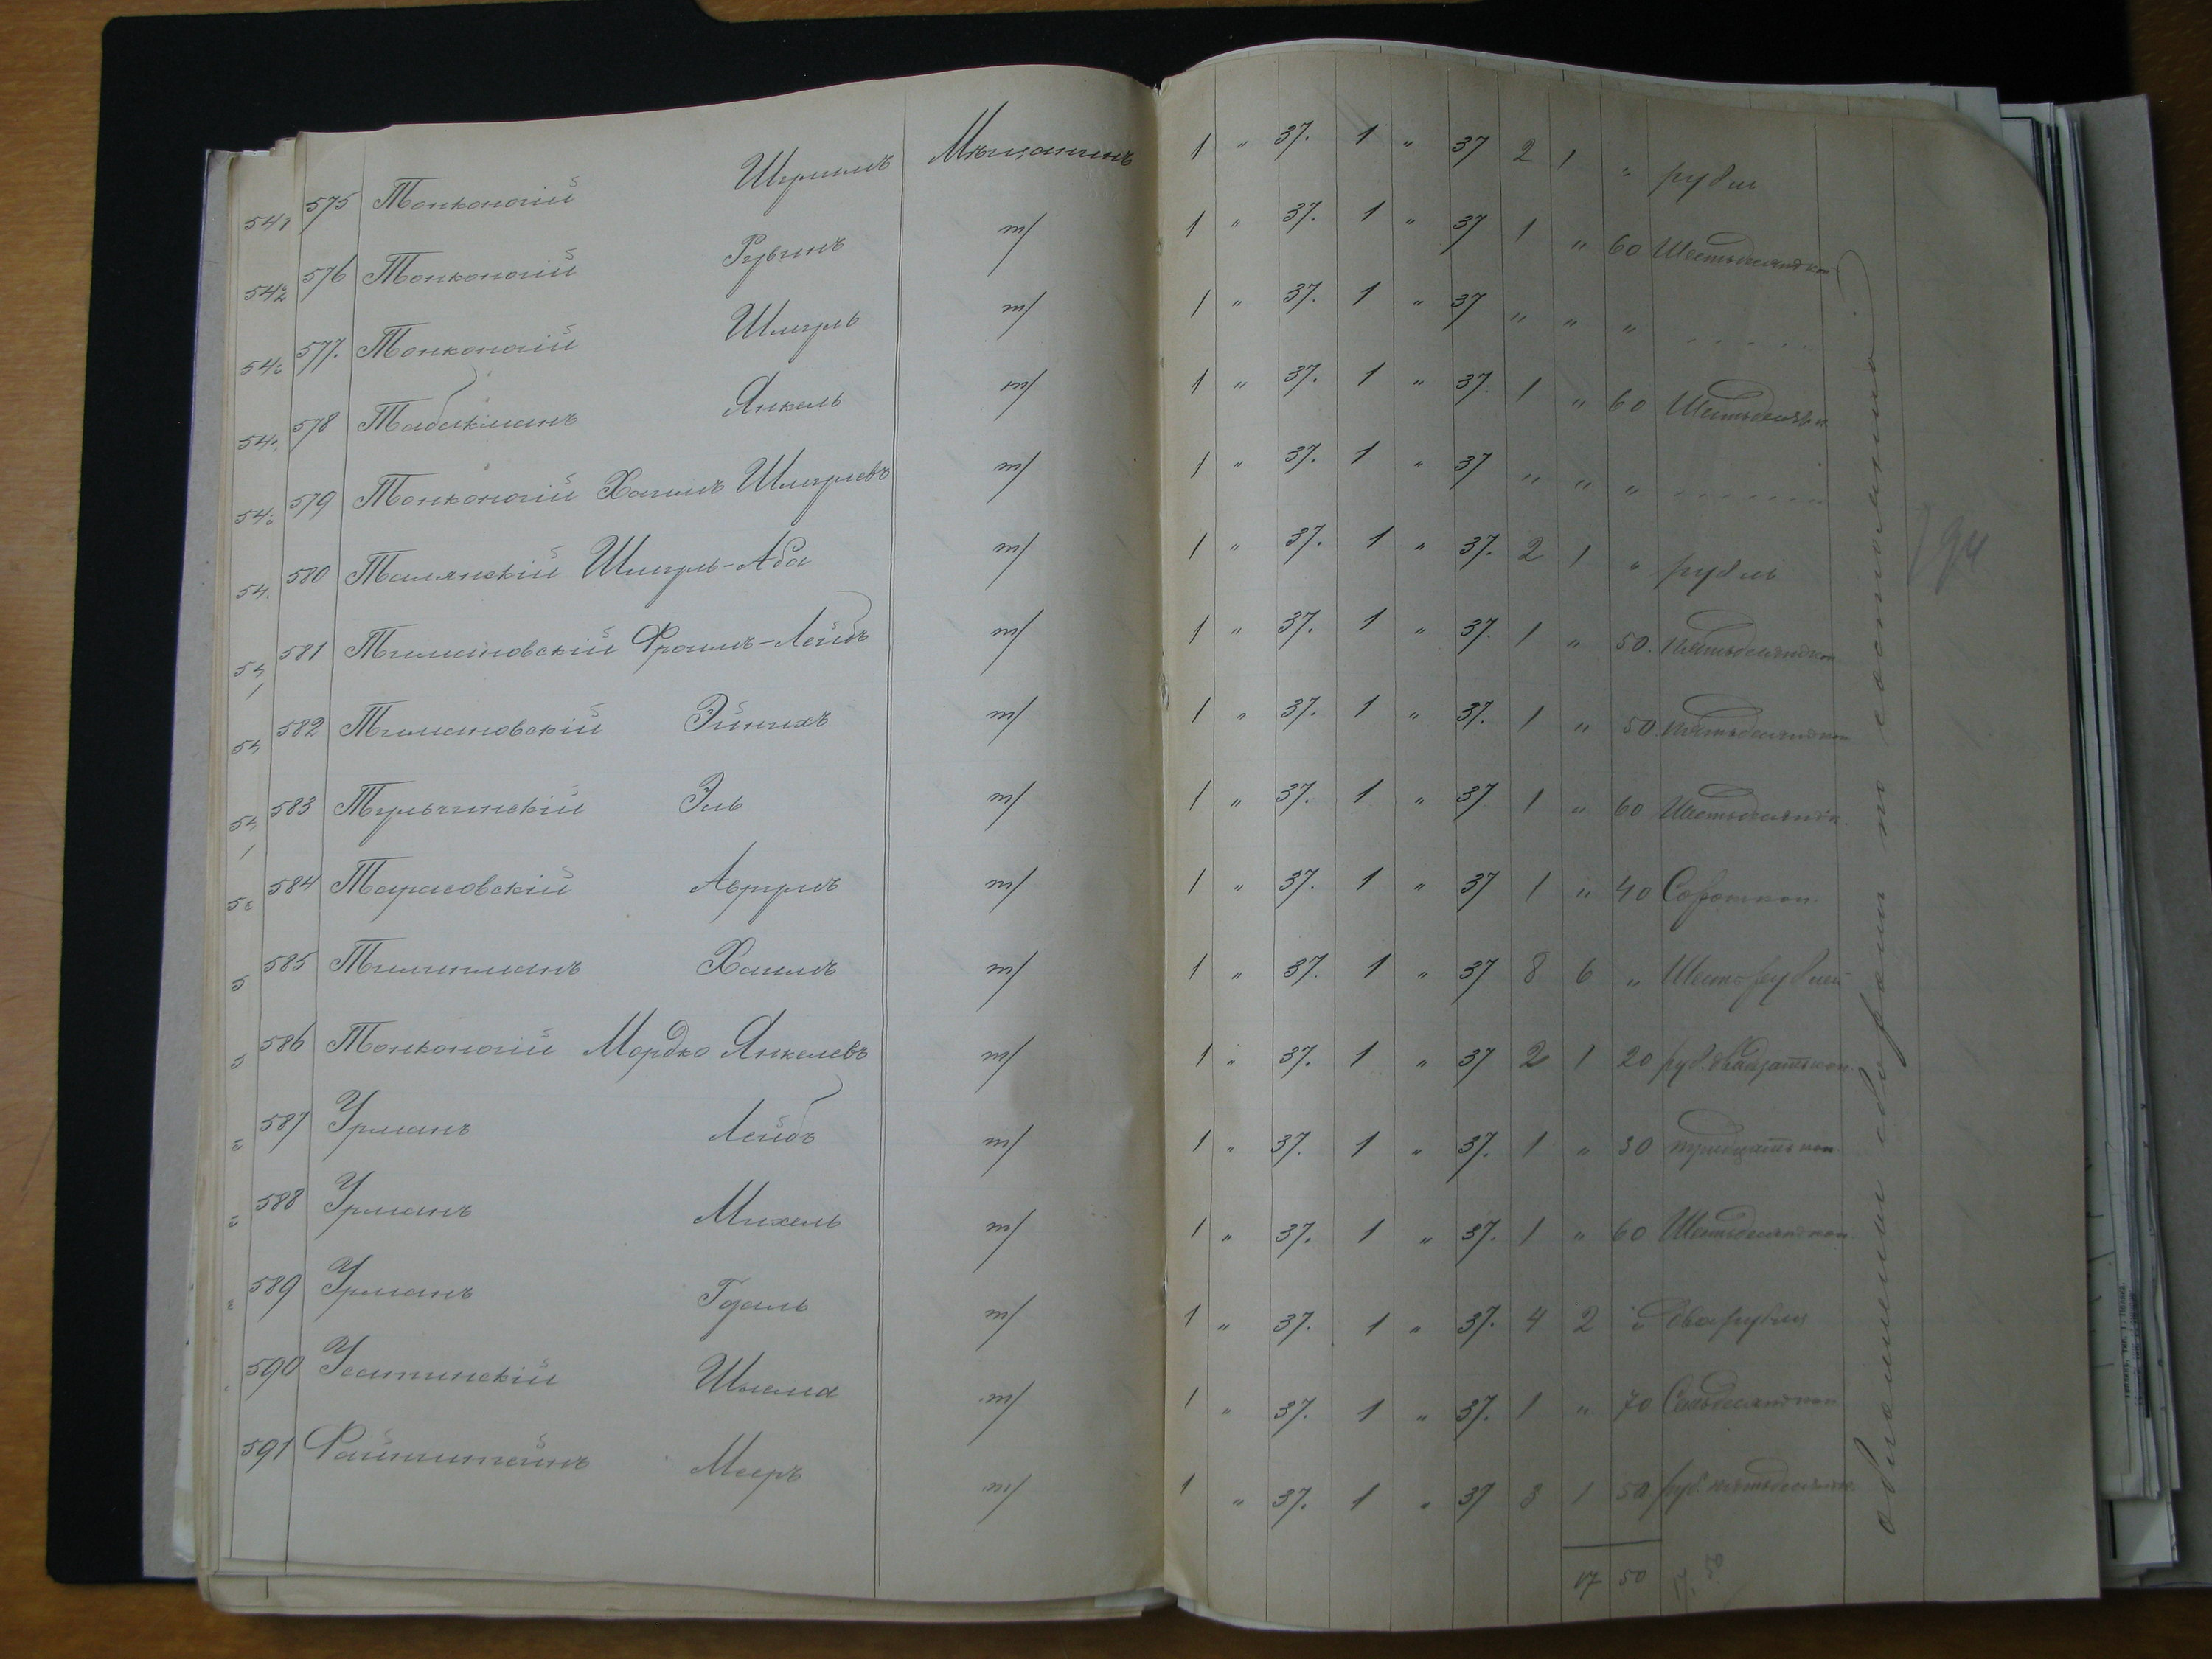 541 575 Тонконогій Шулимъ Мѣщанинъ 1 " 37. 1 " 37 2 1 " рубль
542 576 Тонконогій Рувинъ т/ 1 " 37. 1 " 37 1 " 60 Шестьдесятъ коп.
54 577. Тонконогій Шмуль т/ 1 " 37. 1 " 37 " " " . . . . .
54 578 Табакманъ Янкель т/ 1 " 37. 1 " 37. 1 " 60 Шестьдесятъ к.
54 579 Тонконогій Хаимъ Шмулевъ т/ 1 " 37. 1 " 37 " " " . . . . . . .
54 580 Талянскій Шмуль-Аба т/ 1 " 37. 1 " 37. 2 1 " рубль
54 581 Тимановскій Фроимъ-Лейбъ т/ 1 " 37. 1 " 37. 1 " 50. пятьдесятъ коп
54 582 Тимановскій Эйнихъ т/ 1 " 37. 1 " 37. 1 " 50. пятьдесятъ коп
54 583 Тульчинскій Эль т/ 1 " 37. 1 " 37 1 " 60 Шестьдесятъ к.
5 584 Тарасовскій Аврумъ т/ 1 " 37. 1 " 37 1 " 40 Сорок коп.
5 585 Хаимъ т/ 1 " 37. 1 " 37 8 6 " Шесть рублей
5 586 Тонконогій Мордко Янкелевъ т/ 1 " 37. 1 " 37 2 1 20 руб. двадцать коп.
587 Урманъ Лейбъ т/ 1 " 37. 1 " 37. 1 " 30 тридцать коп.
588 Урманъ Михель т/ 1 " 37. 1 " 37. 1 " 60 Шестьдесят коп
589 Урманъ Гдаль т/ 1 " 37. 1 " 37. 4 2 " два рубля
590 Усатинскій Шлема т/ 1 " 37. 1 " 37. 1 " 70 Семьдесят коп
591 Файнштейнъ Мееръ т/ 1 " 37. 1 " 37 3 1 50 руб. пятьдесят к.
17 50 17. 50